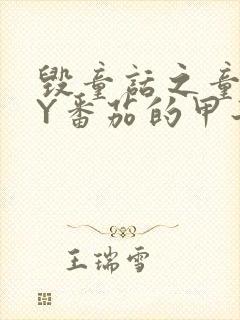 毁童话之童
Y番茄的甲
王瑞雪